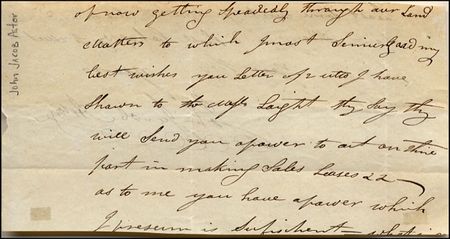 of now getting Speadely through our Land
Matters to which I most Seniusly add my
best wishes you Letter of 2 ulto I have
Shawn to the Laight thy Say thy
will Send you a power to act on thine
part in making Sales Leases &&
as to me you have a power which
I presum is Suficient
John Jacob Astor